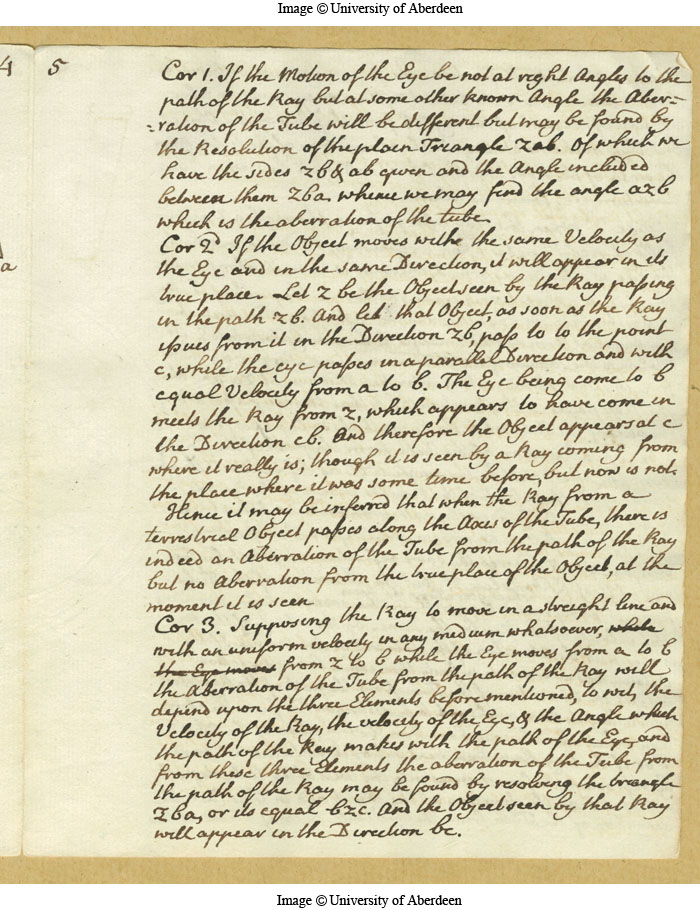 Image © University of Aberdeen
4
5
a
Cor 1. If the Motion of the Eye be not at reght Angles to the
path of the Ray but at some other known Angle the Aber=
=ration of the Tube will be different but may be found by
the Resolution of the plain Triangle zab. Of which we
have the sides zb & ab given and the Angle included
between them zba. whence we may find the angle azb
which is the aberration of the tube.
Cor 2d If the Object moves withe the same Velocity as
the Eye and in the same Direction, it will appear in its
true place. Let z be the Object seen by the Ray passing
in the path zb. And let that Object, as soon as the Ray
issues from it in the Direction zb, pass to to the point
c, while the eye passes in a parallel Direction and with
equal Velocity from a to b. The Eye being come to b
meets the Ray from z, which appears to have come in
the Direction cb. And therefore the Object appears at c
where it really is; though it is seen by a Ray coming from
the place where it was some time before, but now is not.
Hence it may be inferred that when the Ray from a
terrestreal Object passes along the Axes of the Tube, there is
indeed an Aberration of the Tube from the path of the Ray
but no Aberration from the true place of the Object, at the
moment it is seen
Cor 3. Supposing the Ray to move in a streight line and
with an uniform velocity in any medium whatsoever, while
the Eye moves from z to b while the Eye moves from a to b
the Aberration of the Tube from the path of the Ray will
depend upon the three Elements before mentioned, to wit, the
Velocity of the Ray, the velocity of the Eye, & the Angle which
the path of the Ray makes with the path of the Eye, and
from these three Elements the aberration of the Tube from
the path of the Ray may be found by resolving the treangle
zba, or its equal bzc. And the Object seen by that Ray
will appear in the Direction bc.
Image © University of Aberdeen